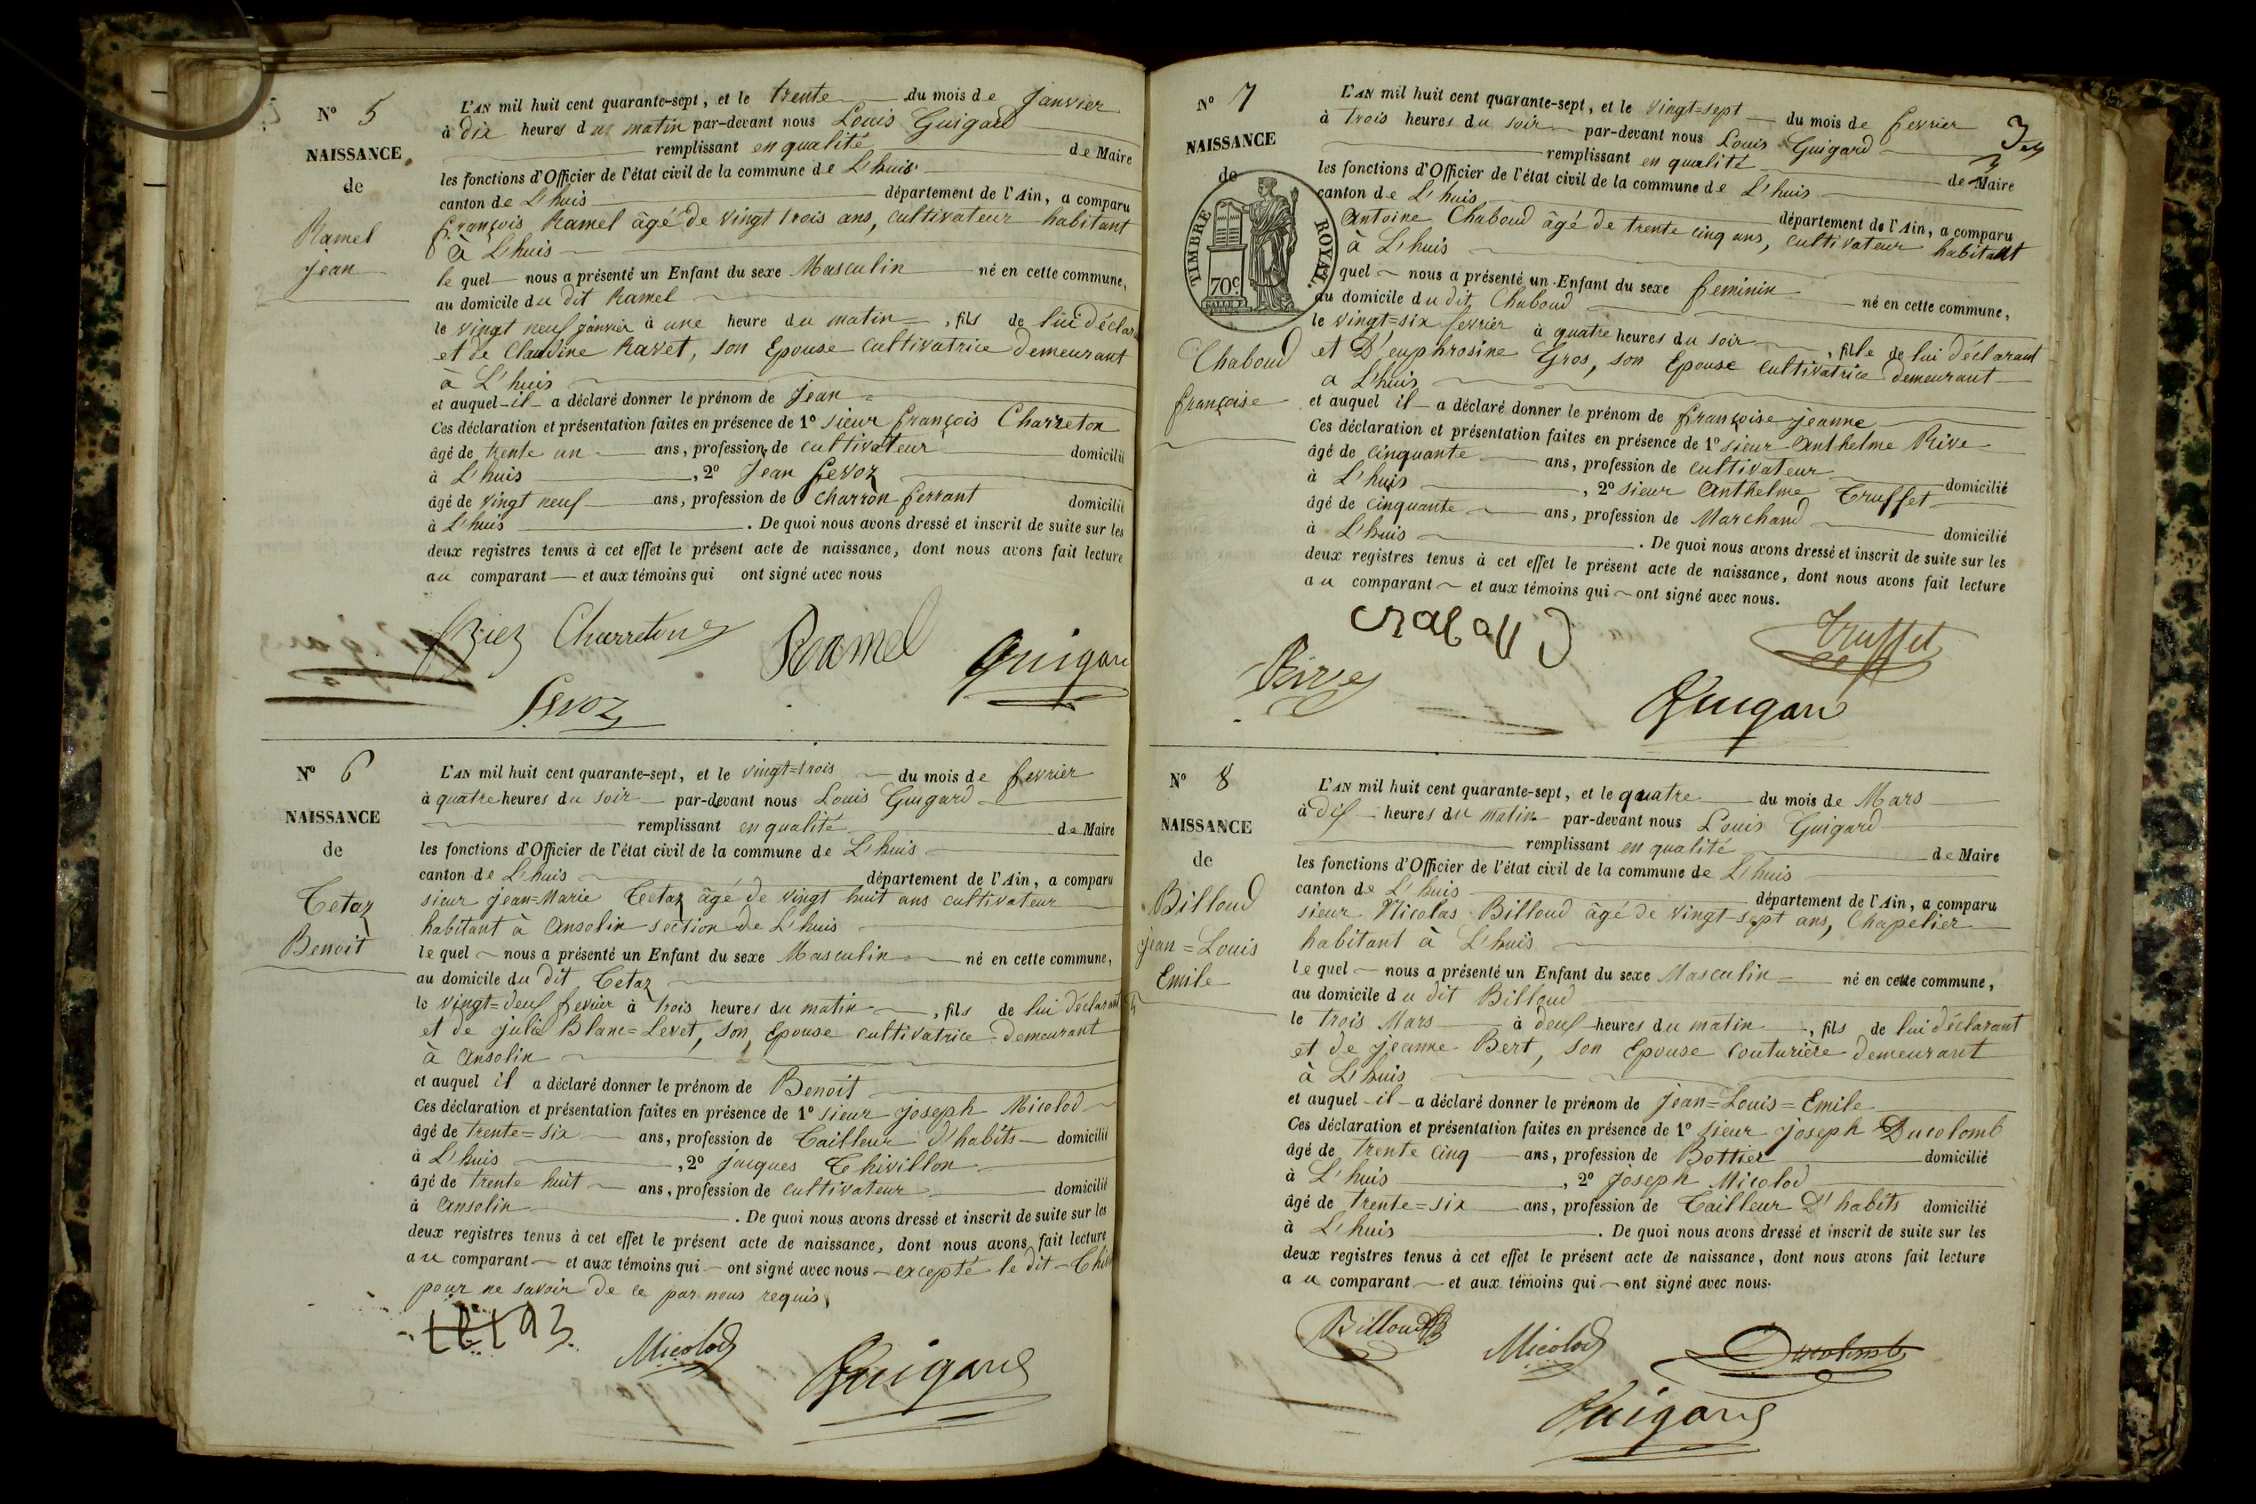 N° 5
NAISSANCE
de
Ramel
Jean
L'AN mil huit cent quarante-sept, et le trente du mois de Janvier
à dix heures du matin par-devant nous Louis Guigard
remplissant en qualité de Maire
les fonctions d'Officier de l'état civil de la commune de L'huis
canton de L'huis département de l'Ain, a comparu
françois Ramel âgé de vingt trois ans, cultivateur habitant
à L'huis
le quel nous a présenté un Enfant du sexe Masculin né en cette commune,
au domicile du dit Ramel
le vingt neuf janvier à une heure du matin, fils de lui déclar
et de Claudine Ravet, son Epouse cultivatrice demeurant
à L'huis
et auquel il a déclaré donner le prénom de Jean
Ces déclaration et présentation faites en présence de 1° sieur françois Charreton
âgé de trente un ans, profession de cultivateur domicilié
à L'huis, 2° Jean fevoz
âgé de vingt neuf ans, profession de charron ferrant domicilié
à L'huis. De quoi nous avons dressé et inscrit de suite sur les
deux registres tenus à cet effet le présent acte de naissance, dont nous avons fait lecture
au comparant et aux témoins qui ont signé avec nous
Charreton Ramel Guigard
fevoz
N° 6
NAISSANCE
de
Cetaz
Benoit
L'AN mil huit cent quarante-sept, et le vingt=trois du mois de fevrier
à quatre heures du soir par-devant nous Louis Guigard
remplissant en qualité de Maire
les fonctions d'Officier de l'état civil de la commune de L'huis
canton de L'huis département de l'Ain, a comparu
sieur jean=Marie Cetaz âgé de vingt huit ans cultivateur
habitant à ansolin section de L'huis
le quel nous a présenté un Enfant du sexe Masculin né en cette commune,
au domicile du dit Cetaz
le vingt=deux fevrier à trois heures du matin, fils de lui déclarant
et de julie Blanc=Levet, son Epouse cultivatrice demeurant
à ansolin
et auquel il a déclaré donner le prénom de Benoit
Ces déclaration et présentation faites en présence de 1° sieur joseph Micolod
âgé de trente=six ans, profession de Tailleur d'habits domicilié
à L'huis, 2° jacques Chivillon
âgé de trente huit ans, profession de cultivateur domicilié
à ansolin. De quoi nous avons dressé et inscrit de suite sur les
deux registres tenus à cet effet le présent acte de naissance, dont nous avons fait lecture
au comparant et aux témoins qui ont signé avec nous excepté le dit Chi
pour ne savoir de ce par nous requis,
tetaz Micolod Guigard
3
N° 7
NAISSANCE
de
TIMBRE ROYAL.
70c
Chaboud
françoise
L'AN mil huit cent quarante-sept, et le vingt=sept du mois de fevrier
à trois heures du soir par-devant nous Louis Guigard
remplissant en qualité de Maire
les fonctions d'Officier de l'état civil de la commune de L'huis
canton de L'huis département de l'Ain, a comparu
Antoine Chaboud âgé de trente cinq ans, cultivateur habitant
à L'huis
quel nous a présenté un Enfant du sexe feminin né en cette commune,
au domicile du dit Chaboud
le vingt=six fevrier à quatre heures du soir, fille de lui déclarant
et D'euphrosine Gros, son Epouse cultivatrice demeurant
a L'huis
et auquel il a déclaré donner le prénom de françoise jeanne
Ces déclaration et présentation faites en présence de 1° sieur Anthelme Rive
âgé de cinquante ans, profession de cultivateur domicilié
à L'huis, 2° sieur Anthelme Truffet
âgé de cinquante ans, profession de Marchand domicilié
à L'huis. De quoi nous avons dressé et inscrit de suite sur les
deux registres tenus à cet effet le présent acte de naissance, dont nous avons fait lecture
au comparant et aux témoins qui ont signé avec nous.
Truffet
Rive
Guigard
N° 8
NAISSANCE
de
Billoud
jean=Louis
Emile
L'AN mil huit cent quarante-sept, et le quatre du mois de Mars
à dix heures du matin par-devant nous Louis Guigard
remplissant en qualité de Maire
les fonctions d'Officier de l'état civil de la commune de L'huis
canton de L'huis département de l'Ain, a comparu
sieur Nicolas Billoud âgé de vingt-sept ans, Chapelier
habitant à L'huis
le quel nous a présenté un Enfant du sexe Masculin né en cette commune,
au domicile du dit Billoud
le trois Mars à deux heures du matin, fils de lui déclarant
et de jeanne Bert, son Epouse couturière demeurant
à L'huis
et auquel il a déclaré donner le prénom de Jean=Louis=Emile
Ces déclaration et présentation faites en présence de 1° sieur joseph Ducolomb
âgé de trente cinq ans, profession de Bottier domicilié
à L'huis, 2° joseph Micolod
âgé de trente=six ans, profession de Tailleur D'habits domicilié
à L'huis. De quoi nous avons dressé et inscrit de suite sur les
deux registres tenus à cet effet le présent acte de naissance, dont nous avons fait lecture
au comparant et aux témoins qui ont signé avec nous.
Billoud Micolod Ducolomb
Guigard